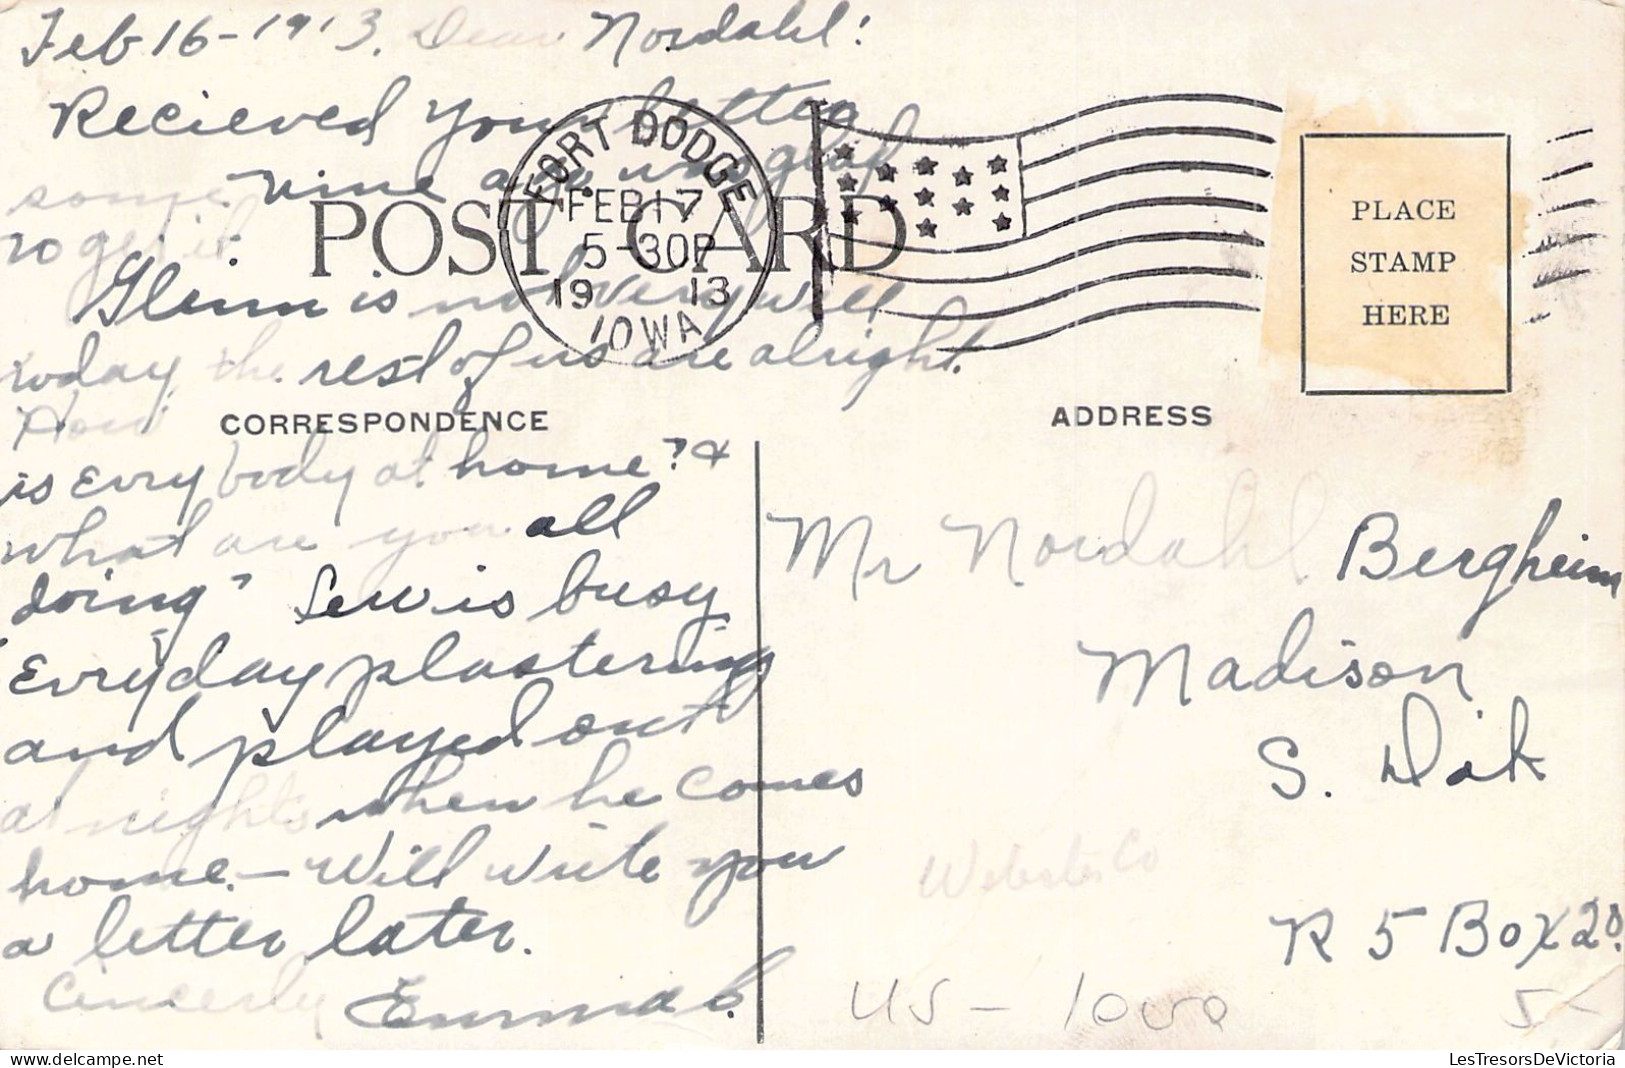 Feb 16-1913. Dear Nordahl!
Recieved your letter
some time ago was glad
to get it.
Glenn is not very well
today, the rest of us are alright.
How
is evry body at home? &
what are you all
doing? Lew is busy
Evryday plastering
and played out
at nights when he comes
home. - Will write you
a letter later.
Cincerly Emma b.
POST CARD
FORT DODGE
FEB 17
5-30P
1913
IOWA
PLACE
STAMP
HERE
CORRESPONDENCE
ADDRESS
Mr Nordahl Bergheim
Madison
S. Dak
Webster Co
R 5 Box 20.
US - Iowa
5-
LesTresorsDeVictoria